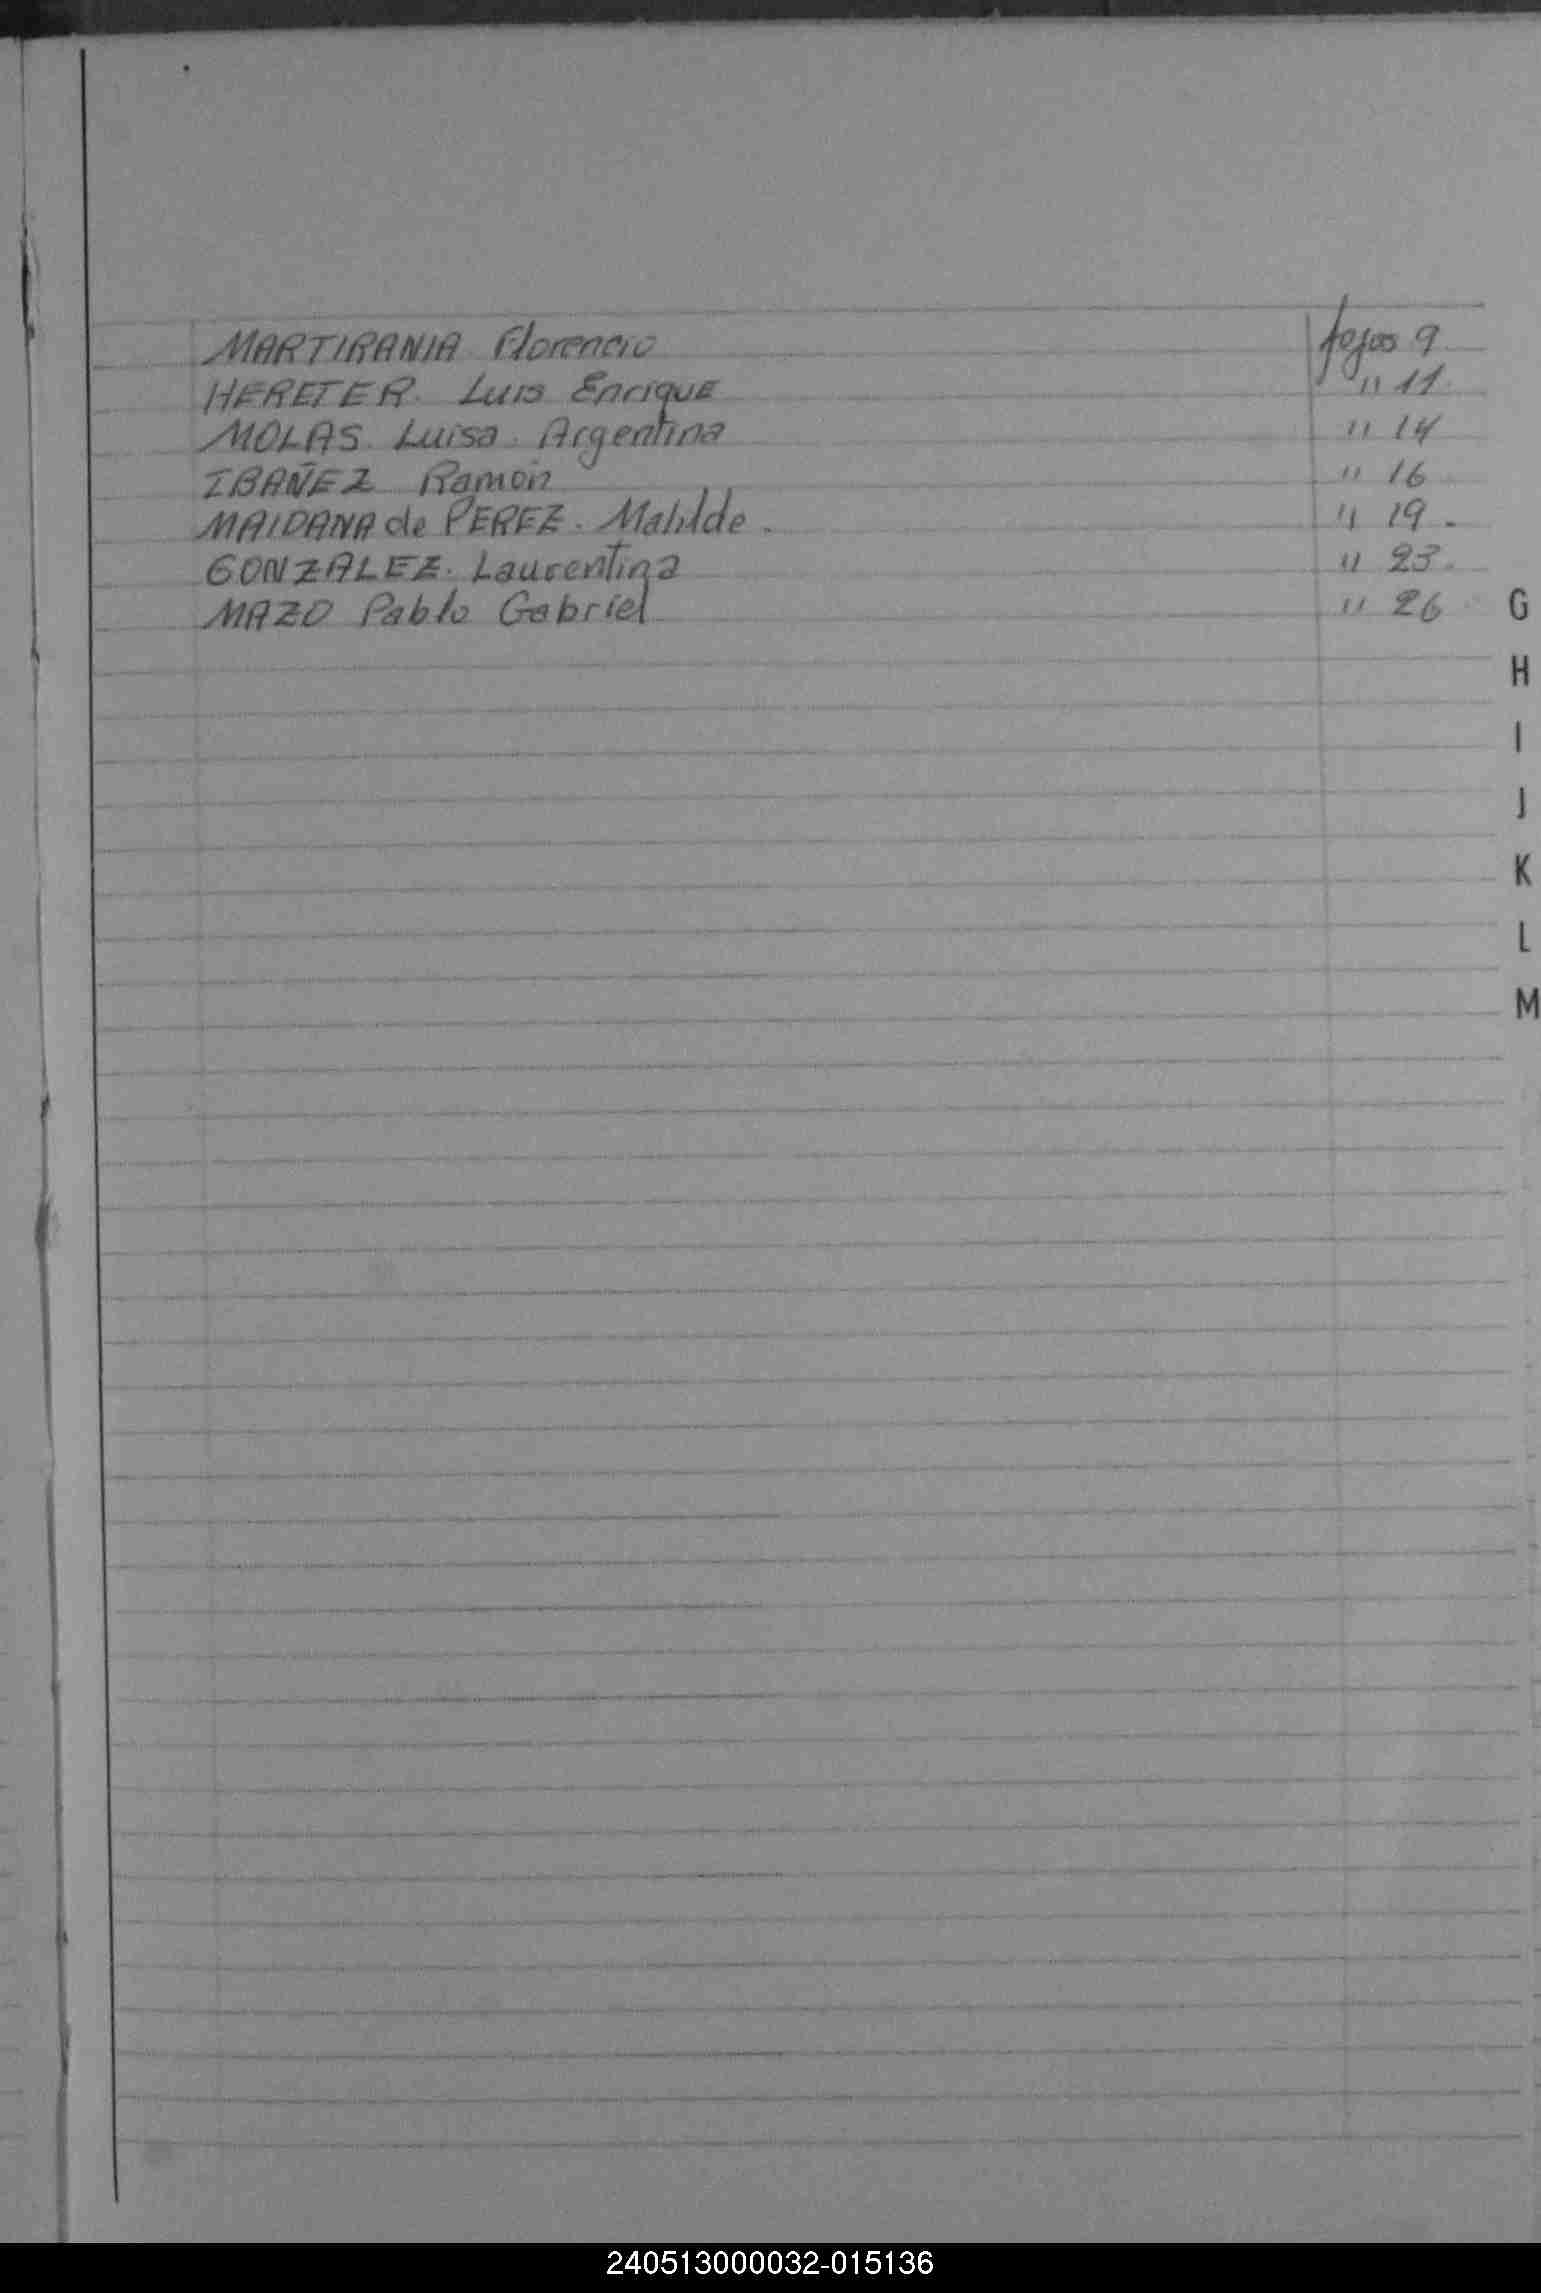 MARTIRANIA Florencio fojas 9
HERETER. Luis Enrique " 11.
MOLAS. Luisa. Argentina " 14
IBAÑEZ Ramón " 16
MAIDANA de PEREZ. Matilde. " 19.
GONZALEZ. Laurentina " 23.
MAZO Pablo Gabriel " 26
G
H
I
J
K
L
M
240513000032-015136